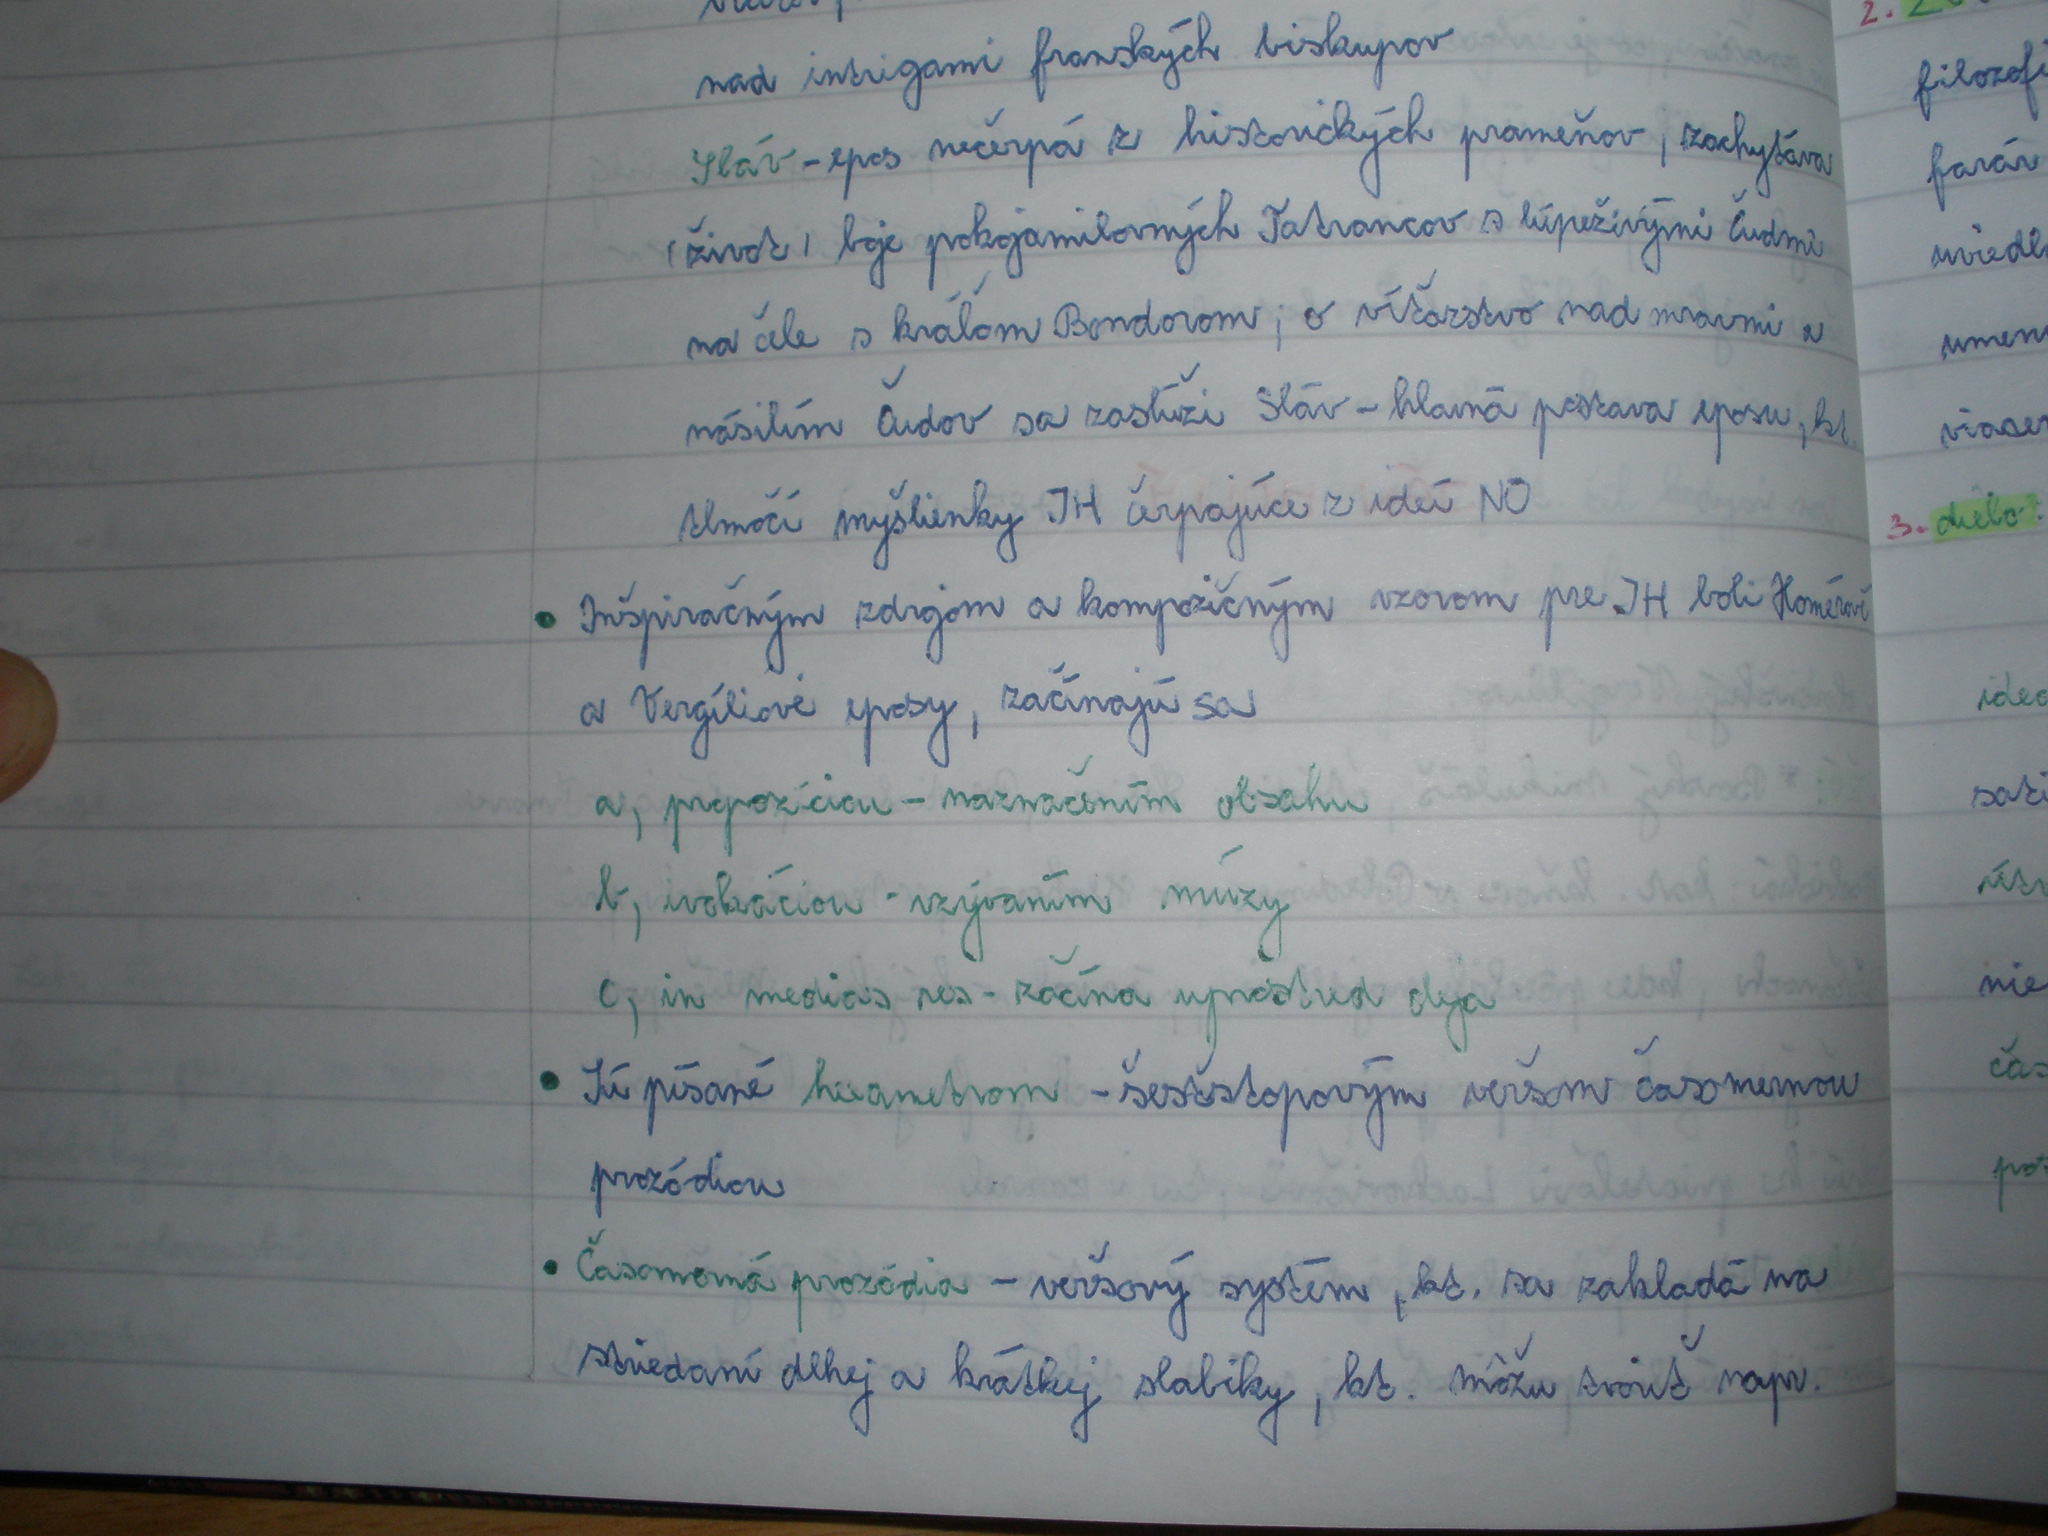 nad intrigami franských biskupov
Sláv - epos nečerpá z historických prameňov, zachytáva
(život) boje pokojamilovných Tatrancov s lúpeživými Čudmi
na čele s kráľom Bondorom; o víťazstvo nad mravmi a
násilím Čudov sa zaslúži Sláv - hlavná postava eposu, kt.
tlmočí myšlienky JH čerpajúce z ideí NO
• Inšpiračným zdrojom a kompozičným vzorom pre JH boli Homérové
a Vergíliové eposy, začínajú sa
a, propozíciou - naznačením obsahu
b, invokáciou - vzývaním múzy
c, in medias res - začína uprostred deja
• Sú písané hexametrom - šesťstopovým veršom časomernou
prozódiou
• Časomerná prozódia - veršový systém, kt. sa zakladá na
striedaní dlhej a krátkej slabiky, kt. môžu tvoriť napr.
2.
filozofi
farár
uviedl
umen
viacer
3. dielo:
ideo
nie
čas